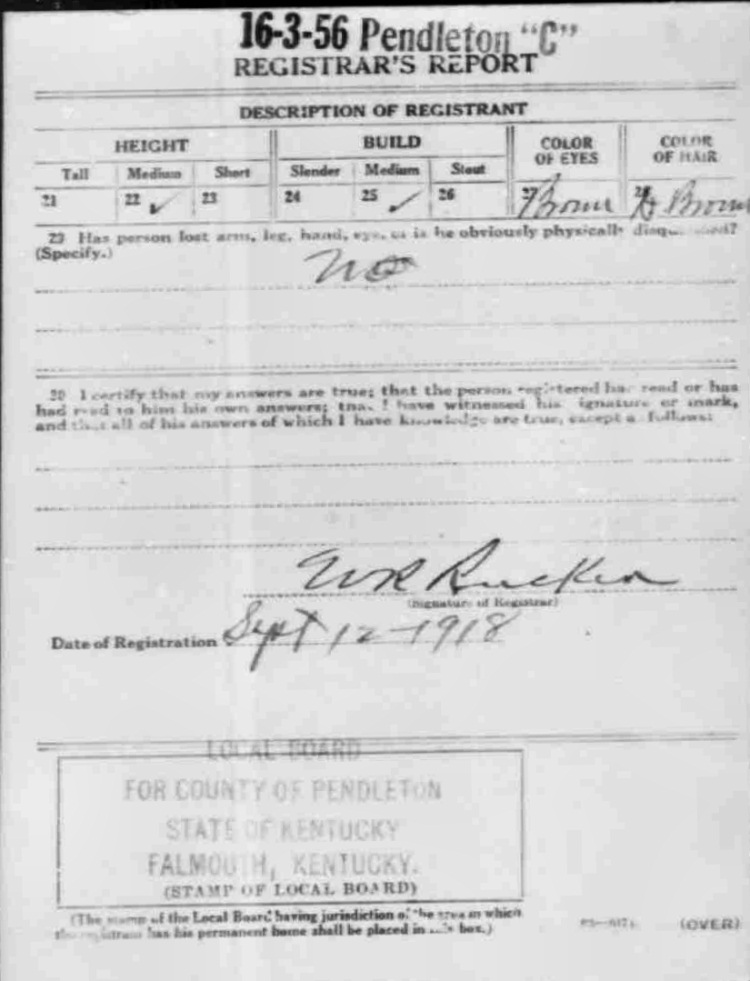 16-3-56 Pendleton "C"
REGISTRAR'S REPORT
DESCRIPTION OF REGISTRANT
HEIGHT BUILD COLOR OF EYES COLOR OF HAIR
Tall Medium Short Slender Medium Stout
21 22 ✓ 23 24 25 ✓ 26 27 Brown 28 Brown
29 Has person lost arm, leg, hand, eye, or is he obviously physically
(Specify.)
No
30 I certify that my answers are true; that the person registered has read or has
had read to him his own answers; that I have witnessed his signature or mark,
and that all of his answers of which I have knowledge are true, except as follows:
Rucker
(Signature of Registrar)
Date of Registration Sept 12-1918
LOCAL BOARD
FOR COUNTY OF PENDLETON
STATE OF KENTUCKY
FALMOUTH, KENTUCKY.
(STAMP OF LOCAL BOARD)
(The stamp of the Local Board having jurisdiction of the area in which
the registrant has his permanent home shall be placed in this box.)
(OVER)